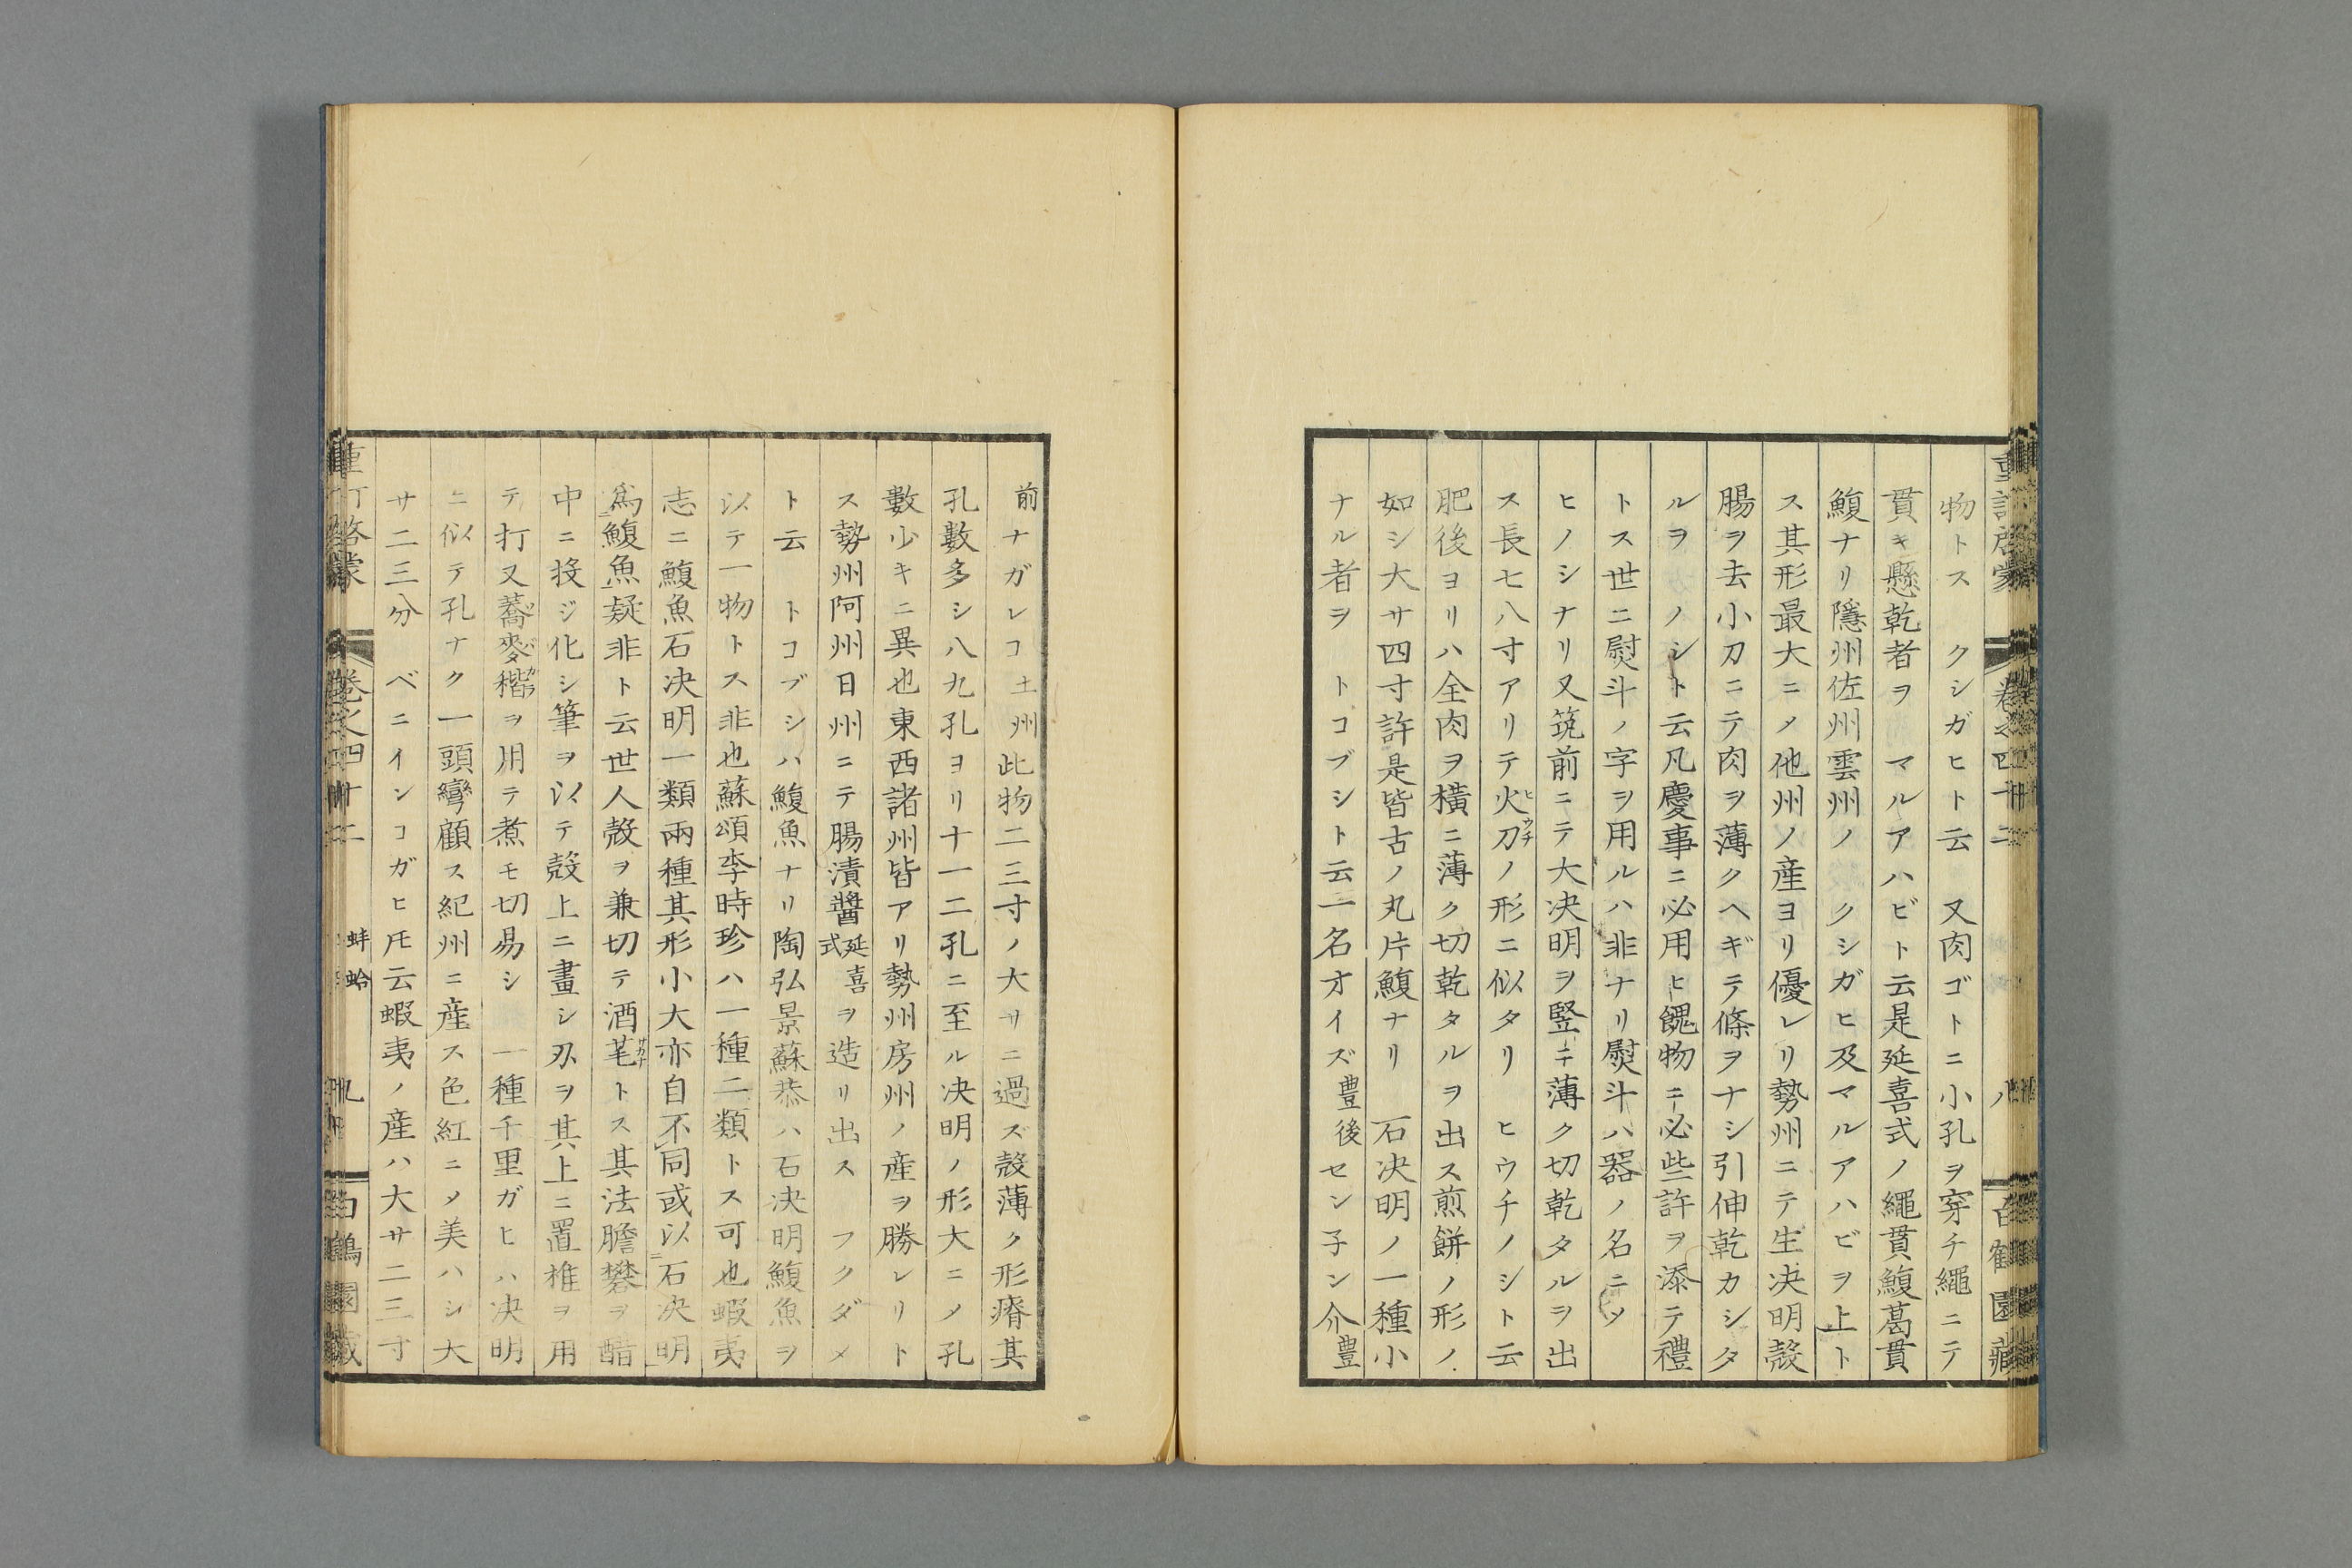 重訂啓蒙 卷之四十二 八 百鶴園藏
物トス クシガヒト云 又肉ゴトニ小孔ヲ穿チ繩ニテ
貫キ懸乾者ヲ マルアハビト云是延喜式ノ繩貫鰒葛貫
鰒ナリ隱州佐州雲州ノ クシガヒ及マルアハビヲ上ト
ス其形最大ニ〆他州ノ産ヨリ優レリ勢州ニテ生决明殻
腸ヲ去小刀ニテ肉ヲ薄クヘギテ條ヲナシ引伸乾カシタ
ルヲ ノシト云凡慶事ニ必用ヒ餽物ニ必些許ヲ添テ禮
トス世ニ熨斗ノ字ヲ用ルハ非ナリ熨斗ハ器ノ名ニ〆
ヒノシナリ又筑前ニテ大决明ヲ竪ニ薄ク切乾タルヲ出
ス長七八寸アリテ火刀ヒウチノ形ニ似タリ ヒウチノシト云
肥後ヨリハ全肉ヲ横ニ薄ク切乾タルヲ出ス煎餅ノ形ノ
如シ大サ四寸許是皆古ノ丸片鰒ナリ 石决明ノ一種小
ナル者ヲ トコブシト云一名オイズ豊後センネンガ豊
前ナガレコ土州此物二三寸ノ大サニ過ズ殻薄ク形瘠其
孔數多シ八九孔ヨリ十一二孔ニ至ル决明ノ形大ニ〆孔
數少キニ異也東西諸州皆アリ勢州房州ノ産ヲ勝レリト
ス勢州阿州日州ニテ腸漬醬延喜式ヲ造リ出ス フクダメ
ト云 トコブシハ鰒魚ナリ陶弘景蘇恭ハ石决明鰒魚ヲ
以テ一物トス非也蘇頌李時珍ハ一種二類トス可也蝦夷
志ニ鰒魚石决明一類兩種其形小大亦自不同或以石决明
爲鰒魚疑非ト云世人殻ヲ兼切テ酒毛トス其法膽礬ヲ醋
中ニ投ジ化シ筆ヲ以テ殻上ニ畫シ刄ヲ其上ニ置椎ヲ用
テ打又蕎麥稭ヲ用テ煮モ切易シ 一種千里ガヒハ决明
ニ似テ孔ナク一頭彎顧ス紀州ニ産ス色紅ニ〆美ハシ大
サ二三分 ベニインコガヒ𪜈云蝦夷ノ産ハ大サ二三寸
重訂啓蒙 卷之四十二 蚌蛤 九 百鶴園藏